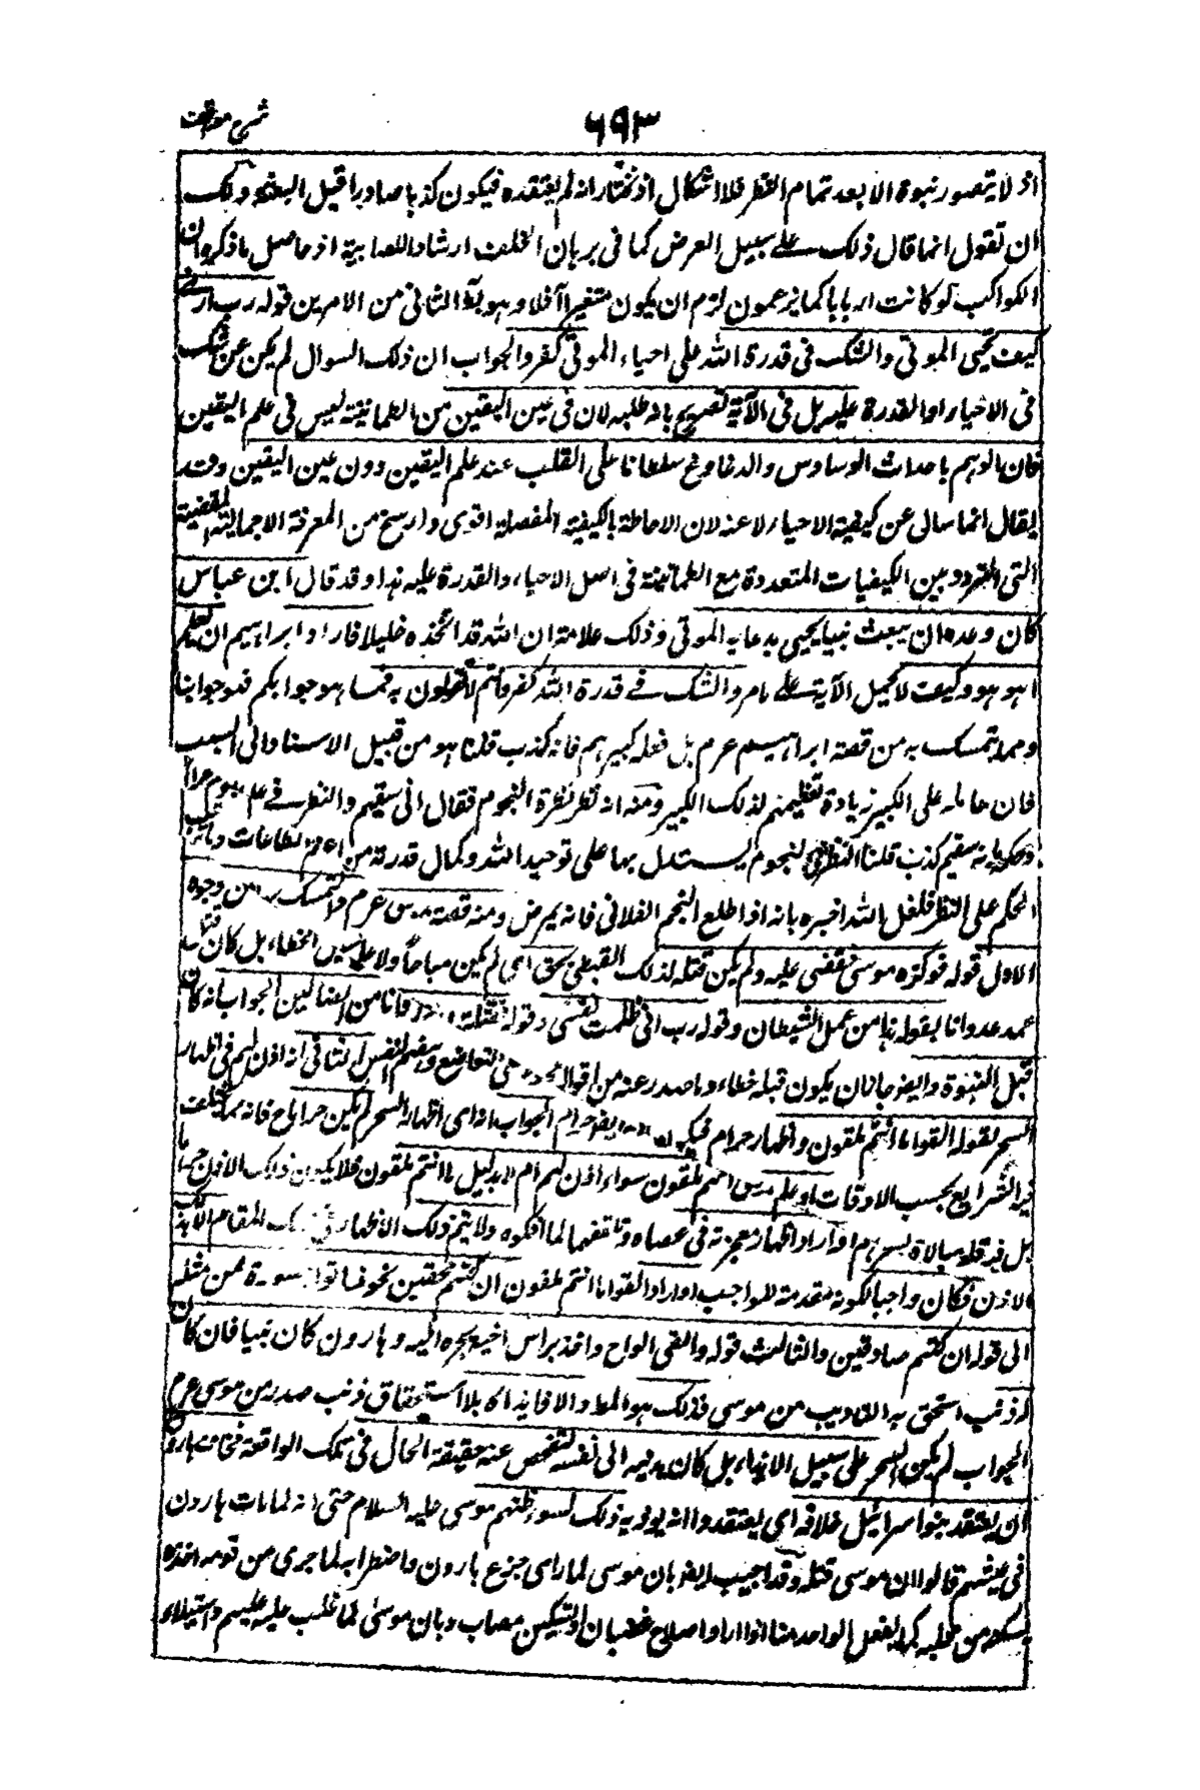 شرح مواقف
٦٩٣
اذ لا يتصور نبوة الا بعد تمام النظر فلا اشكال اذ نختار انه لم يعتقده فيكون كذبا صادرا قبل البعثة ولك
ان تقول انما قال ذلك على سبيل الفرض كما فى برهان الخلف ارشادا للصابية اذ حاصل ما ذكره ان
الكواكب لو كانت اربابا كما يزعمون لزم ان يكون متغيرا آفلا وهو بط الثانى من الامرين قوله رب ارنى
كيف تحيى الموتى والشك فى قدرة الله على احياء الموتى كفر والجواب ان ذلك السوال لم يكن عن شك
فى الاحياء او القدرة عليه بل فى الآية تصريح بانه طلبه لان فى عين اليقين من الطمانينة ليس فى علم اليقين
فان الوهم باحداث الوساوس والدغادغ سلطانا على القلب عند علم اليقين دون عين اليقين وقد
يقال انما سال عن كيفية الاحياء لا عنه لان الاحاطة بالكيفية المفصلة اقوى وارسخ من المعرفة الاجمالية المفضية
الى التردد بين الكيفيات المتعددة مع الطمانينة فى اصل الاحياء والقدرة عليه هذا وقد قال ابن عباس
كان وعده ان يبعث نبيا يحيى بدعايه الموتى وذلك علامة ان الله قد اتخذه خليلا فاراد ابراهيم ان يعلم
اهو هو وكيف لا تحمل الآية على ما مر والشك فى قدرة الله كفر وانتم لا تقولون به فما هو جوابكم فهو جوابنا
ومما يتمسك به من قصة ابراهيم عرم بل فعله كبيرهم فانه كذب قلنا هو من قبيل الاسناد الى السبب
فان حامله على الكبير زيادة تعظيمهم لذلك الكبير ومنه انه نظر نظرة فى النجوم فقال انى سقيم والنظر فى علم النجوم حرام
وحكمه بانه سقيم كذب قلنا النظر فى النجوم ليستدل بها على توحيد الله وكمال قدرته من اعظم الطاعات
الحكم على النظر فلعل الله اخبره بانه اذا طلع النجم الفلانى فانه يمرض ومنه قصة موسى عرم والتمسك بها من وجوه
الاول قوله فوكزه موسى فقضى عليه ولم يكن قتله لذلك القبطى بحق اى لم يكن مباحا ولا على سبيل الخطاء بل كان قتل
عمد عدوانا لقوله هذا من عمل الشيطان وقوله رب انى ظلمت نفسى وقوله فعلتها اذا وانا من الضالين الجواب انه كان
قبل النبوة وايضا جاز ان يكون قتله خطاء وما صدر عنه من اقواله محمول على التواضع وهضم النفس الثانى انه اذن لهم فى اظهار
السحر لقوله القوا ما انتم ملقون واظهاره حرام فيكون اذنه ايضا حراما الجواب انه اى اظهار السحر لم يكن حراما ح فانه مما يختلف
فيه الشرايع بحسب الاوقات او علم موسى انهم ملقون سواء اذن لهم ام لا بدليل ما انتم ملقون فلا يكون ذلك الاذن حراما
بل فيه قلة مبالاة بسحرهم او اراد اظهار معجزته فى عصاه وتلقفها لما افكوه ولا يتم ذلك الاظهار فى ذلك المقام الا بذلك
الاذن فكان واجبا لكونه مقدمة للواجب او اراد القوا ما انتم ملقون ان كنتم محقين نحو فاتوا بسورة من مثله
الى قوله ان كنتم صادقين والثالث قوله والقى الواح واخذ براس اخيه يجره اليه وهارون كان نبيا فان كان
له ذنب استحق به التاديب من موسى فذلك هو المط والا فايذاؤه بلا استحقاق ذنب صدر من موسى عرم
الجواب لم يكن الجر على سبيل الايذاء بل كان يدنيه الى نفسه لتفحص عنه حقيقة الحال فى تلك الواقعة فخاف هارون
ان يعتقد بنوا اسرائيل خلافه اى يعتقدوا انه يوذيه وذلك لسوء ظنهم موسى عليه السلام حتى انه لما مات هارون
فى غيبتهم قالوا ان موسى قتله وقد اجيب ايضا بان موسى لما راى جزع هارون واضطرابه لما جرى من قومه اخذه
ليسكنه من قلبه كما يفعل الواحد منا اذا اراد اصلاح غضبان او تسكين مصاب وبان موسى لما غلب عليه الهم واستيلاء